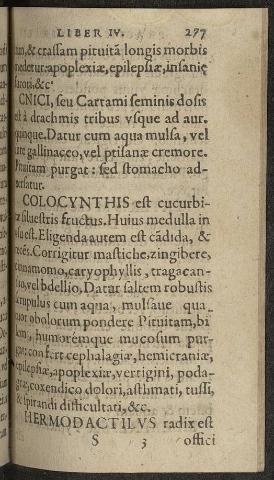 LIBER IV. 277
tum, & crassam pituitā longis morbis
medetur: apoplexiæ, epilepsiæ, insanię
&c.
CNICI, seu Cartami seminis dosis
est à drachmis tribus vsque ad aur.
quinque. Datur cum aqua mulsa, vel
iure gallinaceo, vel ptisanæ cremore.
Pituitam purgat: sed stomacho ad-
uersatur.
COLOCYNTHIS est cucurbi-
tæ siluestris fructus. Huius medulla in
usu est. Eligenda autem est cādida, &
recēs. Corrigitur mastiche, zingibere,
cinnamomo, caryophyllis, tragacan-
tho, vel bdellio. Datur saltem robustis
scrupulus cum aqua, mulsaue qua
tuor obolorum pondere Pituitam, bi
lem, humorémque mucosum pur-
gat: confert cephalagiæ, hemicraniæ,
epilepsiæ, apoplexiæ, vertigini, poda-
græ, coxendico dolori, asthmati, tussi,
& spirandi difficultati, &c.
HERMODACTILVS radix est
S 3 offici